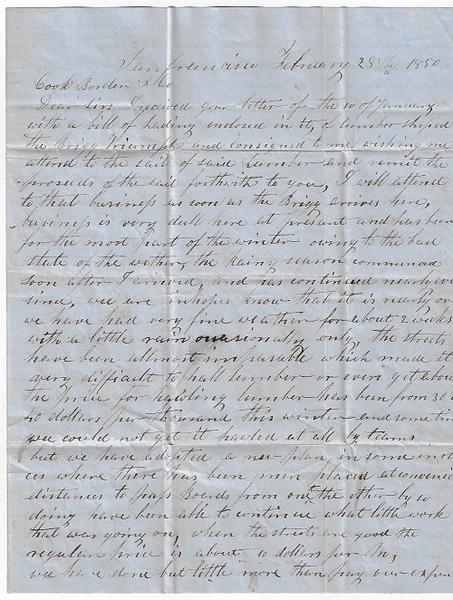 Sanfrancisco February 28th 1850
Cook Borden & Co
Dear Sirs I received your letter of the 10 of January
with a bill of lading enclosed in it, of lumber shiped
the Brigg Triumph and consigned to me wishing me
attend to the sail of said Lumber and remit the
proseeds of the sail forthwith to you, I will attend
to that business as soon as the Brigg arives here,
business is very dull here at present and has been
for the most part of the winter owing to the bad
state of the wether, the Rainy season commenced
soon after I arived, and has continued nearly
since, we are in hopes know that it is nearly
we have had very fine weather for about 2 weeks
with a little rain occasionally only, the streets
have been allmost impasable which made it
very difficult to hall lumber or even get about
the price for hawling lumber has been from 30
40 dollars per thousand this winter and some
we could not get it hawled at all by teams
but we have adopted a new plan in some
ces where there has been men placed at
distances to pass Boards from one to the other by so
doing have been able to continue what little work
that was going on, when the streets are good the
regular price is about 10 dollars per m,
we have done but little more than pay our